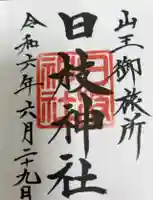 山王御旅所
日枝神社
令和六年六月二十九日